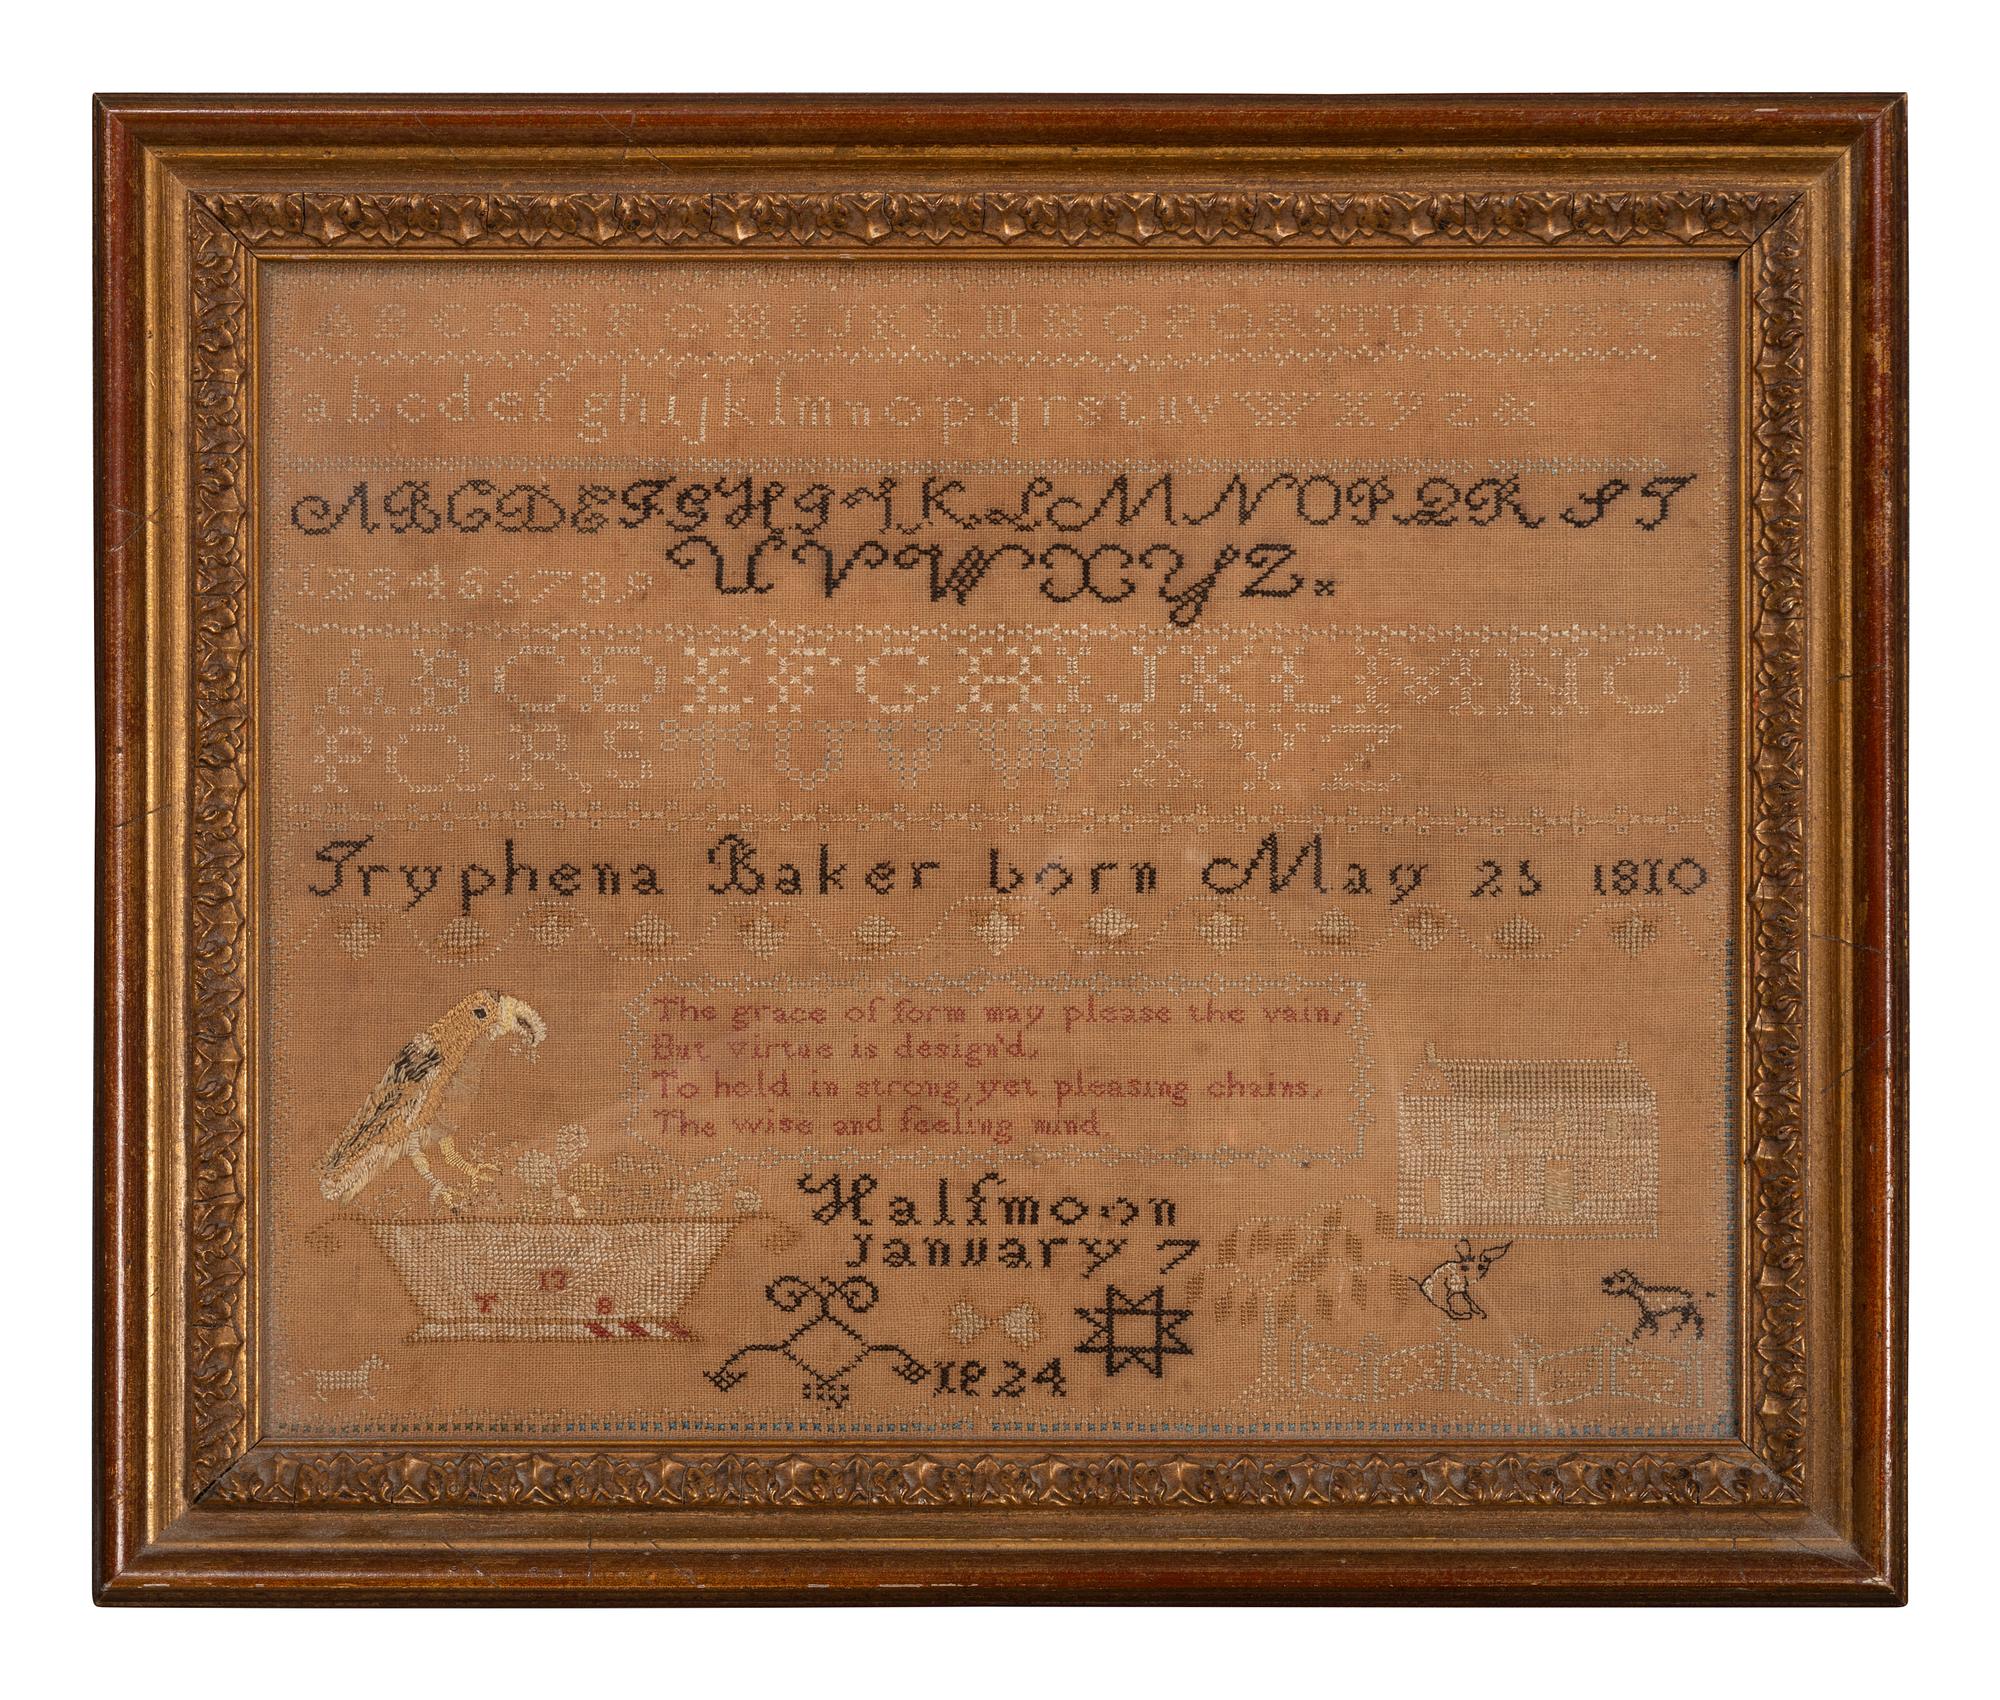 A B C D E F G H I J K L M N O P Q R S T U V W X Y Z
a b c d e f g h i j k l m n o p q r s t u v w x y z &
A B C D E F G H I J K L M N O P Q R S T
U V W X Y Z.
1 2 3 4 5 6 7 8 9
A B C D E F G H I J K L M N O
P Q R S T U V W X Y Z
Tryphena Baker born May 25 1810
The grace of form may please the vain,
But virtue is design'd,
To hold in strong, yet pleasing chains,
The wise and feeling mind.
Halfmoon
January 7
1824
13
T B